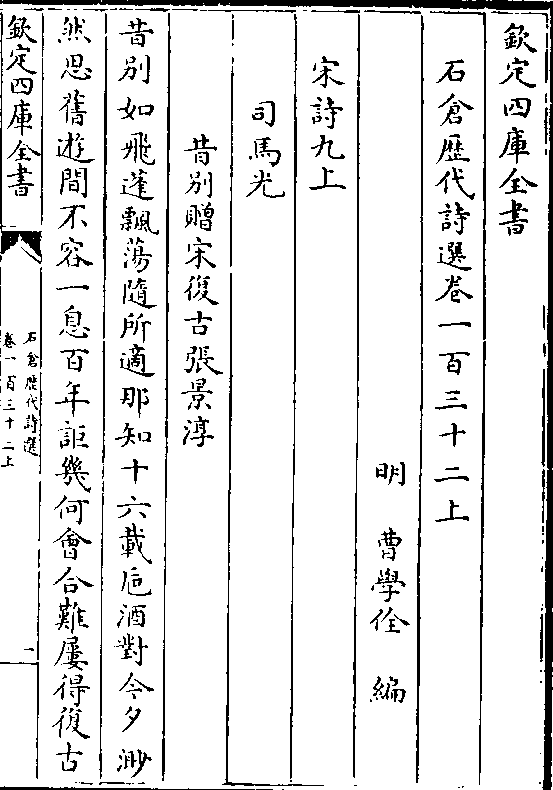 欽定四庫全書
石倉歷代詩選卷一百三十二上
明　曹學佺　編
宋詩九上
司馬光
昔别贈宋復古張景淳
昔别如飛蓬飄蕩隨所適那知十六載巵酒對今夕渺
然思舊遊間不容一息百年詎幾何會合難屢得復古
欽定四庫全書
石倉歷代詩選
卷一百三十二上
一